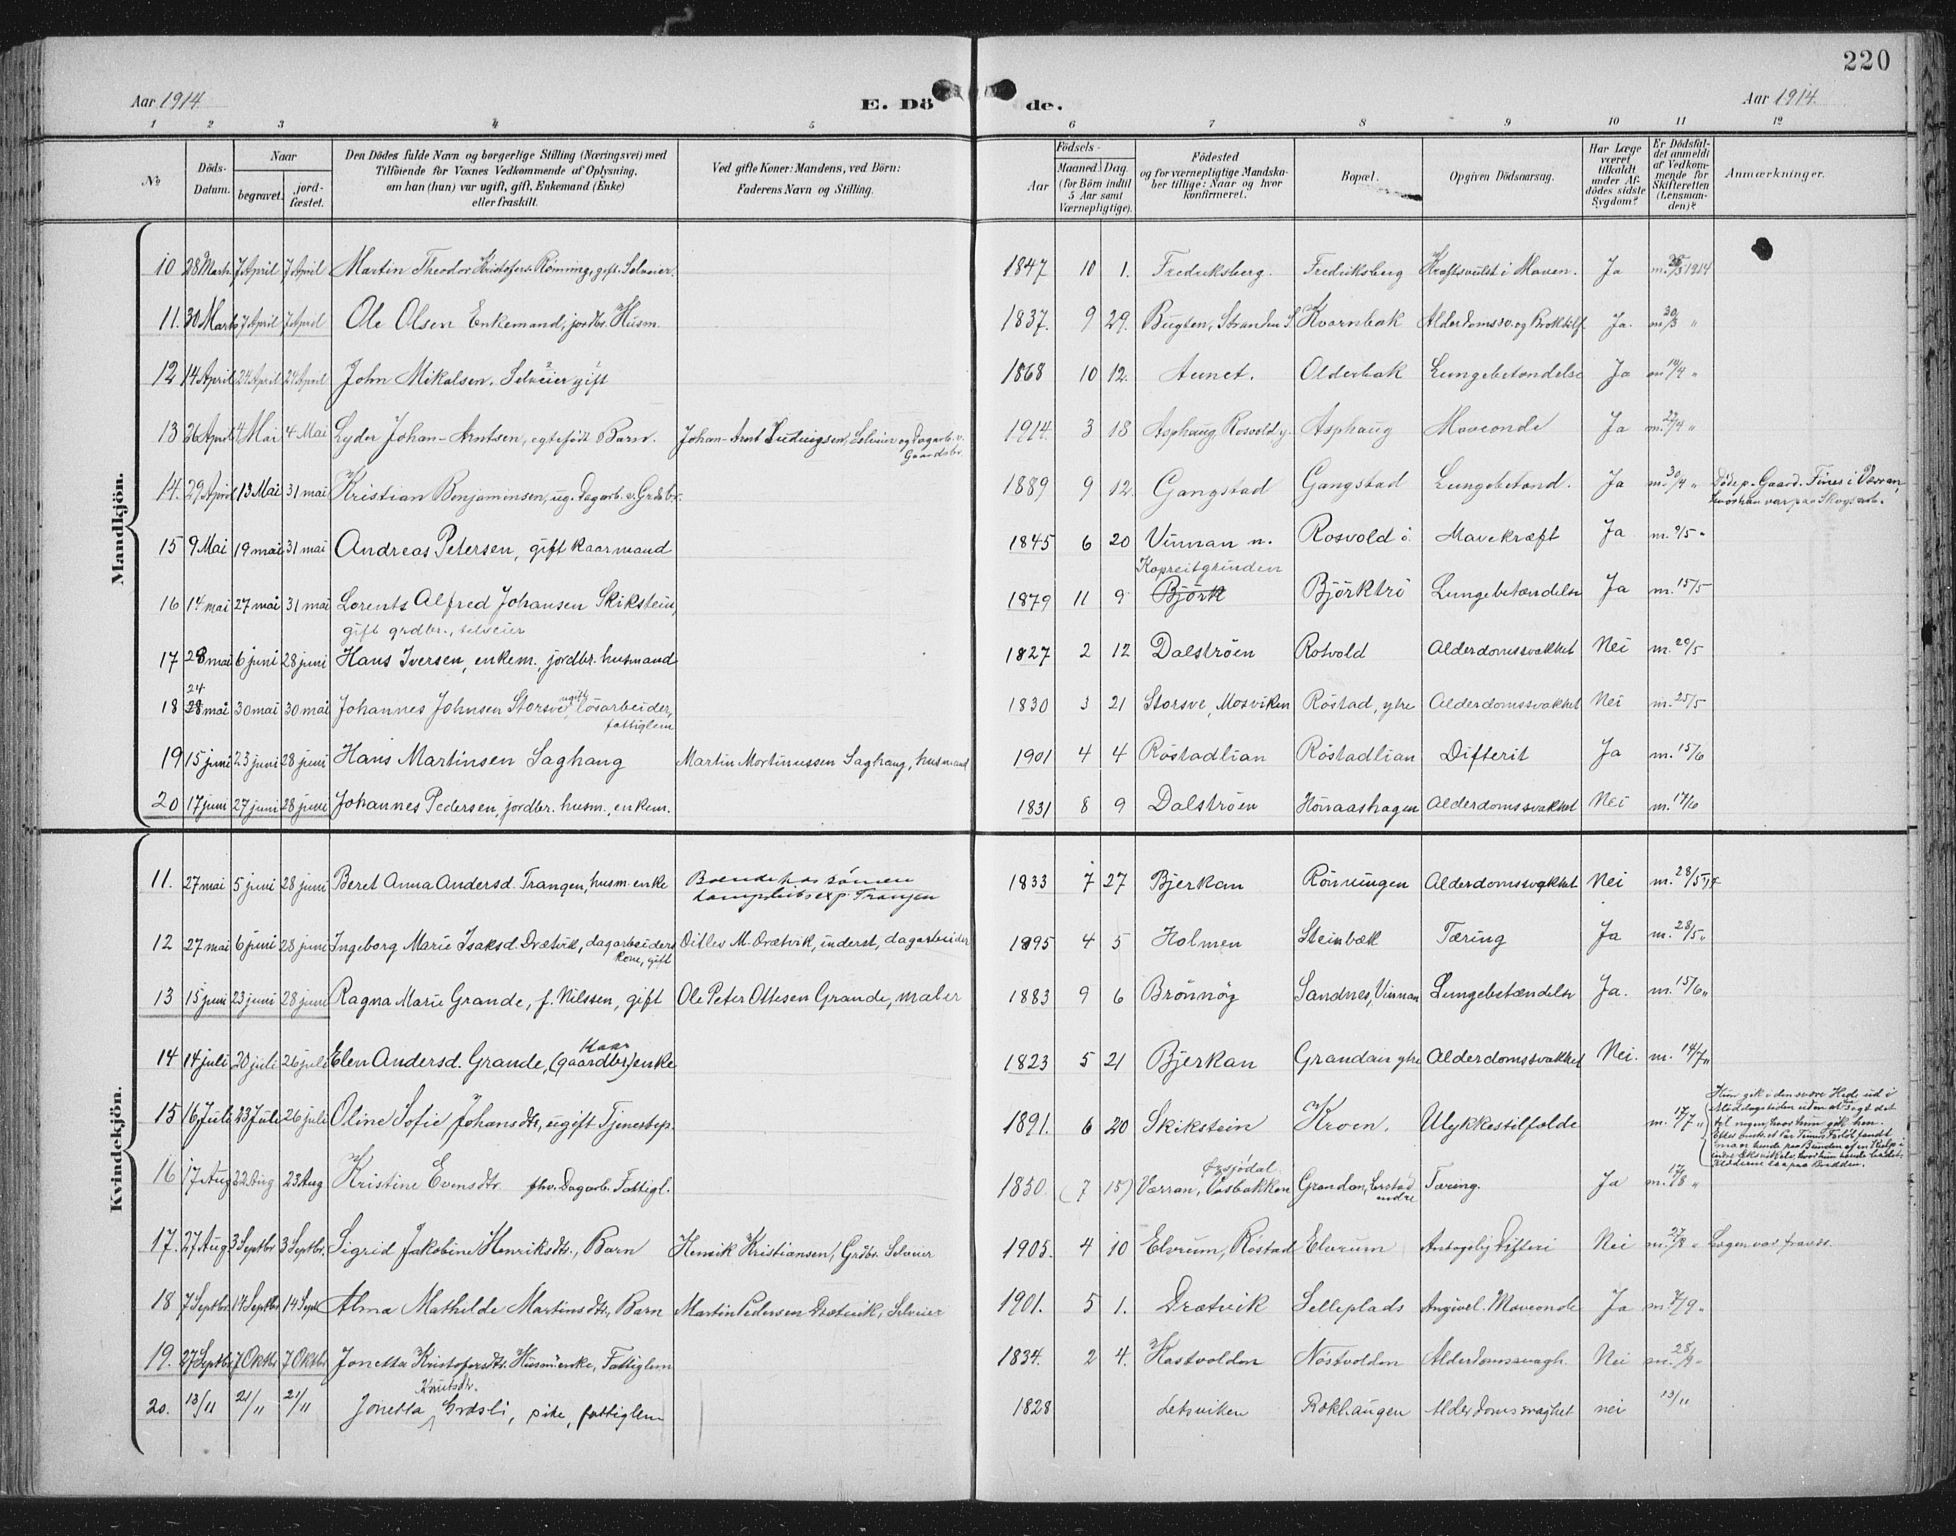 220
Aar 1914
E. Dö de.
Aar 1914.
1 2 3 4 5 6 7 8 9 10 11 12
No
Döds-Datum.
Naar
begravet. jord-fæstet.
Den Dödes fulde Navn og borgerlige Stilling (Næringsvei) med
Tilföiende for Voxnes Vedkommende af Oplysning,
om han (hun) var ugift, gift, Enkemand (Enke)
eller fraskilt.
Ved gifte Koner: Mandens, ved Börn:
Faderens Navn og Stilling.
Födsels-
Aar
Maaned. Dag.
(for Börn indtil
5 Aar samt
Værnepligtige).
Födested
og for værnepligtige Mandska-
ber tillige: Naar og hvor
konfirmeret.
Bopæl.
Opgiven Dödsaarsag.
Har Læge
været
tilkaldt
under Af-
dödes sidste
Sygdom?
Er Dödsfal-
det anmeldt
af Vedkom-
mende for
Skifteretten
(Lensman-
den)?
Anmærkninger.
Mandkjön.
10 28 Marts 7 April 7 April Martin Theodor Kristofers. Rönning, gift. Selveier. 1847 10 1. Fredriksberg. Fredriksberg Kræftsvulst i Maven. Ja m. 28/3 1914
11. 30 Marts 7 April 7 April Ole Olsen Enkemand, jordbr. Husm. 1837. 9 29. Bugten, Stranden S. Kvarnbak Alderdomssv. og Broktilf. Ja. m 30/3 "
12 14 April 24 April 24 April John Mikalsen. Selveier gift 1868 10 12. Aunet. Olderbak Lungebetændelse Ja m 14/4 "
13 26 April 4 Mai 4 Mai Lyder Johan-Arntsen, egtefödt Barn. Johan-Arnt Ludvigsen, Selveier og Dagarb. v. Gaardsbr. 1914. 3 18 Asphaug, Rosvold y. Asphaug Maveonde Ja m. 27/4 "
14. 29 April 13 Mai 31 mai Kristian Benjaminsen, ug. Dagarb. v. Grdsbr. 1889 9 12. Gangstad Gangstad Lungebetænd. Ja m 30/4 " Döde p. Gaard. Fines i Værran,
hvor han var paa Skogsarb.
15 9 Mai 19 mai 31 mai Andreas Petersen, gift kaarmand 1845 6 20 Vinnan n. Rosvold ö. Mavekræft Ja m. 9/5 "
16 14 mai 27 mai 31 mai Lorents Alfred Johansen Skikstein, 1879 11 9 Kapreitgrinden Björk Björktrö Lungebetændelse Ja m. 15/5
gift grdbr., selveier
17 28 mai 6 juni 28 juni Hans Iversen, enkem., jordbr. husmand 1827 2 12 Dalströen Rotvold Alderdomssvakhet Nei m. 29/5
18 24 28 mai 30 mai 30 mai Johannes Johnsen Storsve, ugift lösarbeider, fattiglem 1830 3 21 Storsve, Mosviken Röstad, ytre Alderdomssvakhet Nei m. 25/5
19 15 juni 23 juni 28 juni Hans Martinsen Saghaug Martin Mortinussen Saghaug, husmand 1901 4 4 Röstadlian Röstadlian Difterit Ja m. 15/6
20 17 juni 27 juni 28 juni Johannes Pedersen, jordbr. husm., enkem. 1831 8 9 Dalströen Höivaashagen Alderdomssvakhet Nei m. 17/6
Kvindekjön.
11. 27 mai 5 juni 28 juni Beret Anna Andersd. Trangen, husm. enke Boende hos sönnen
dampskibsexp. Trangen 1833 7 27 Bjerkan Rönningen Alderdomssvakhet Nei m. 28/5 14
12 27 mai 6 juni 28 juni Ingeborg Marie Isaksd. Drætvik, dagarbeiders kone, gift Ditlev M. Drætvik, inderst, dagarbeider 1895 4 5 Holmen Steinbæk Tæring Ja m. 28/5 "
13 15 juni 23 juni 28 juni Ragna Marie Grande, f. Nilssen, gift Ole Peter Ottesen Grande, maler 1883 9 6 Brönnöy Sandnes, Vinnan Lungebetændelse Ja. m. 15/6 "
14 14 juli 20 juli 26 juli Elen Andersd. Grande, (gaardbr) kaar enke 1823 5 21 Bjerkan Grandan ytre Alderdomssvakhet Nei. m. 14/7 "
15 16 Juli 23 Juli 26 juli Oline Sofie Johansdtr, ugift Tjenestep. 1891. 6 20 Skikstein Kroen. Ulykkestilfælde m. 17/7 "
Hun gik i den svære Hede ud i
Middagstiden uden at ha sagt det
til nogen, hvor hun gik hen.
16 17 Aug 22 Aug 23 Aug Kristine Evensdtr fhv. Dagarb. Fattigl. 1850. (7 15) Værran, Oxsjödal. Vasbakken Grandan, Leistad indre Tæring. Ja m. 17/8 "
17. 27 Aug 3 Septbr 3 Septbr. Sigrid Jakobine Henriksdtr., Barn Henrik Kristiansen, Grdbr. Selveier 1905. 4 10 Elvrum, Röstad Elvrum Antagelig Difteri Nei m. 27/8 " Lægen var fravær.
18 7 Septbr. 14 Septbr 14 Septr Alma Mathilde Martinsdtr, Barn Martin Pedersen Drætvik, Selveier 1901. 5 1. Drætvik Selleplads Angivel. Maveonde Ja m. 7/9 "
19. 27 Septbr 7 Oktbr 7 Oktbr Jonetta Kristofersdtr. Husm.enke, Fattiglem 1834. 2 4. Hastvolden Nöstvolden Alderdomssvagh. Nei m. 28/9 "
20. 13/11 21/11 21/11 Jonetta Knutsdtr. Grösli, pike, fattiglem 1828 Letsviken Rokhaugen Alderdomssvaghet nei 13/11